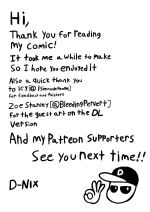 Hi,
Thank you for reading
my comic!
It took me a while to make
So I hope you endoyed It
Also a quick thank you
to KJ[@
for feedback and
Zoe Stanley [@BleedingPervert]
for the guest art on the DL
Version
And my Patreon Supporters
See you next time!!
D-Nix